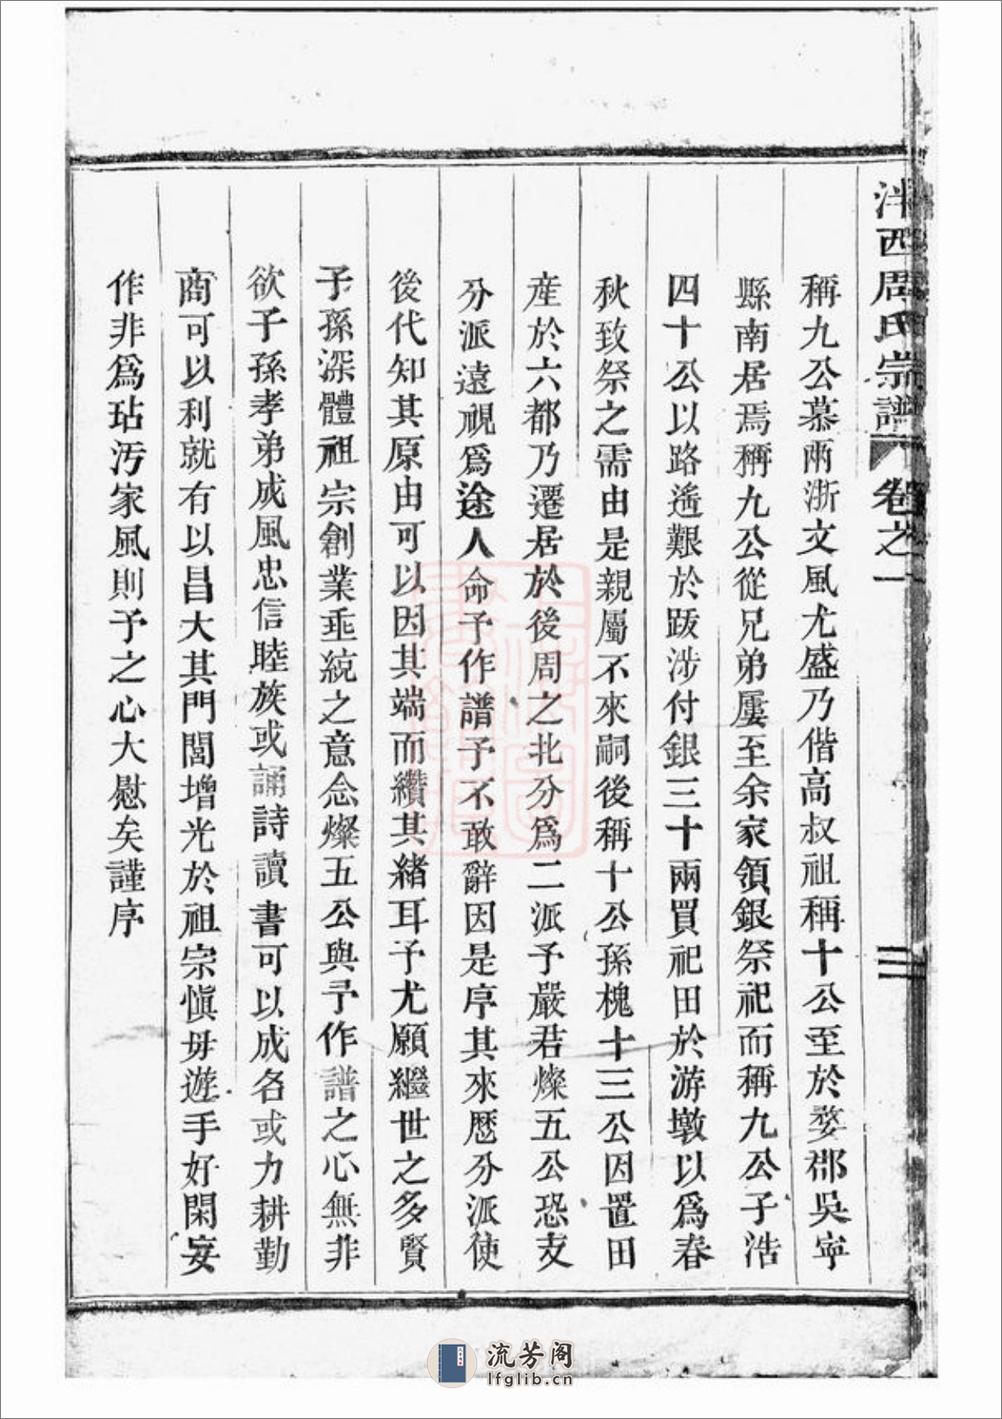 泮西周氏宗譜 卷之一
二
稱九公慕兩浙文風尤盛乃偕高叔祖稱十公至於婺郡吳寧
縣南居焉稱九公從兄弟屢至余家領銀祭祀而稱九公子浩
四十公以路遙艱於跋涉付銀三十兩買祀田於游墩以為春
秋致祭之需由是親屬不來嗣後稱十公孫槐十三公因置田
産於六都乃遷居於後周之北分為二派予嚴君燦五公恐支
分派遠視為途人命予作譜予不敢辭因是序其來歷分派使
後代知其原由可以因其端而纘其緒耳予尤願繼世之多賢
子孫深體祖宗創業垂統之意念燦五公與予作譜之心無非
欲子孫孝弟成風忠信睦族或誦詩讀書可以成名或力耕勤
商可以利就有以昌大其門閭增光於祖宗愼毋遊手好閑妄
作非為玷汚家風則予之心大慰矣謹序
流芳阁
lfglib.cn